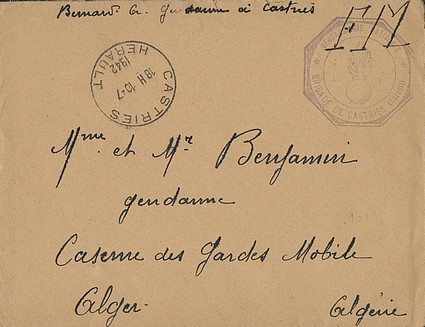 Bernard G. gendarme à Castries
FM
GENDARMERIE
BRIGADE DE CASTRIES
CASTRIES
18H 10-7
1942
HERAULT
Mme et Mr Benjamin
gendarme
Caserne des Gardes Mobile
Alger - Algérie